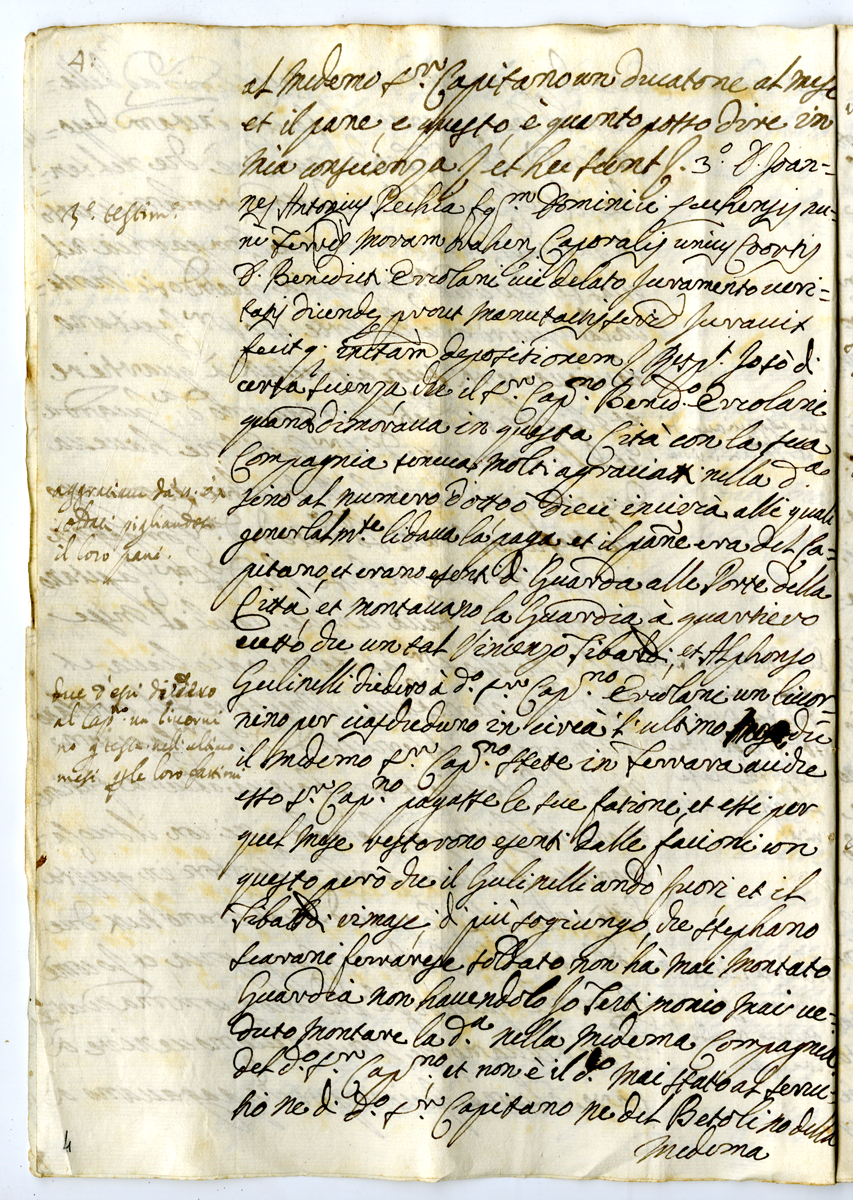 4.
al medemo Sr. Capitano un ducatone al mese
et il pane, e questo è quanto posso dire in
mia conscienza et hec sunt 3.° D. Joan=
nes Antonius Pechia fq.m Dominici
3.° testim.°
moram trahens Caporalis unius Cohortis
D. Benedicti Ercolani cui delato Juramento veri=
tatis dicende, prout manu tactis Juravit
fecit q. depositionem Resp.t Io sò di
certa scienza che il Sr. Cap.no Bened.o Ercolani
quando dimorava in questa Città con la sua
Compagnia teneva molti agraciati nella d.a
sino al numero d'otto ò dieci incirca alli quali
aggraciava da 8. ò x
soldati pigliandosi
il loro pane.
generalm.te li dava la paga et il pane era del Ca=
pitano, et erano esenti di Guarda alle Porte della
Città, et montavano la Guardia à quartiero
eccetto che un tal Vincenzo Tibaldi, et Alphonso
Gulinelli diedero à d.o Sr. Cap.no Ercolani un licor=
nino per ciascheduno in circa l'ultimo mese che
due d'essi diedero
al Cap.o un licorni
no p testa nell'ultimo
mese p le loro fattioni
il medemo Sr. Cap.no stete in Ferrara acciòche
esso Sr. Cap.no pagasse le sue fationi, et essi per
quel mese restorono esenti dalle facioni con
questo però che il Gulinelli andò fuori et il
Tibaldi rimase, di più sogiungo, che Stephano
Scavani ferrarese soldato non hà mai montato
Guardia non havendolo Io Testimonio mai ve=
duto montare la d.a nella medema Compagnia
del d.o Sr. Cap.no, et non è il d.o mai stato al servi=
tio ne di d.o Sr. Capitano ne del Betolino della
medema
4